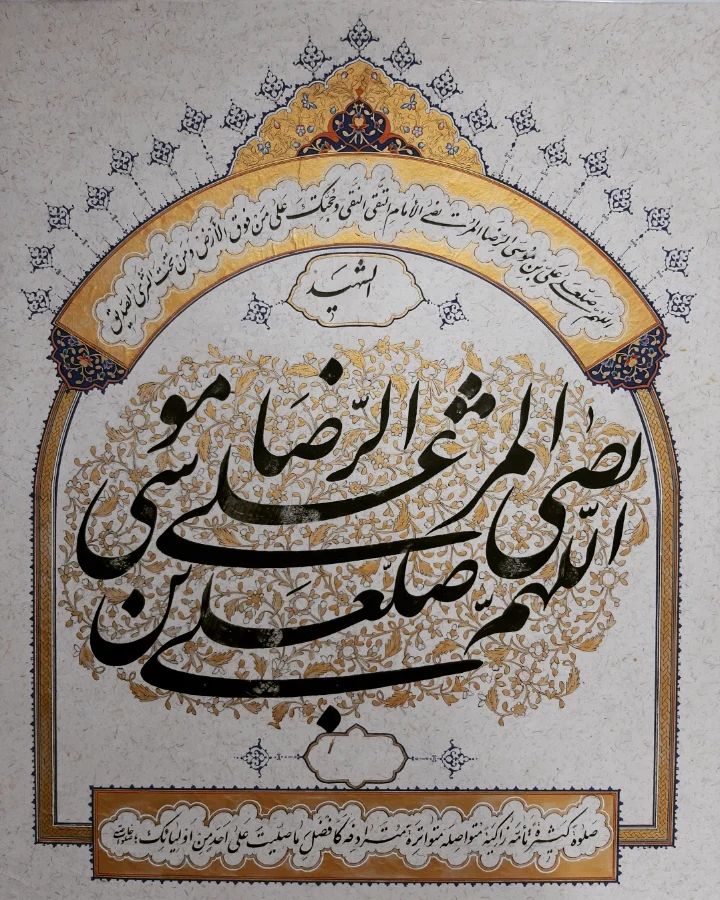 اللهم صل علی علی بن موسی الرضا المرتضی الامام التقی النقی و حجتک علی من فوق الارض و من تحت الثری الصدیق
الشهید
اللهم صل علی علی بن موسی الرضا المرتضی
صلوة کثیرة تامة زاکیة متواصلة متواترة مترادفة کافضل ما صلیت علی احد من اولیائک